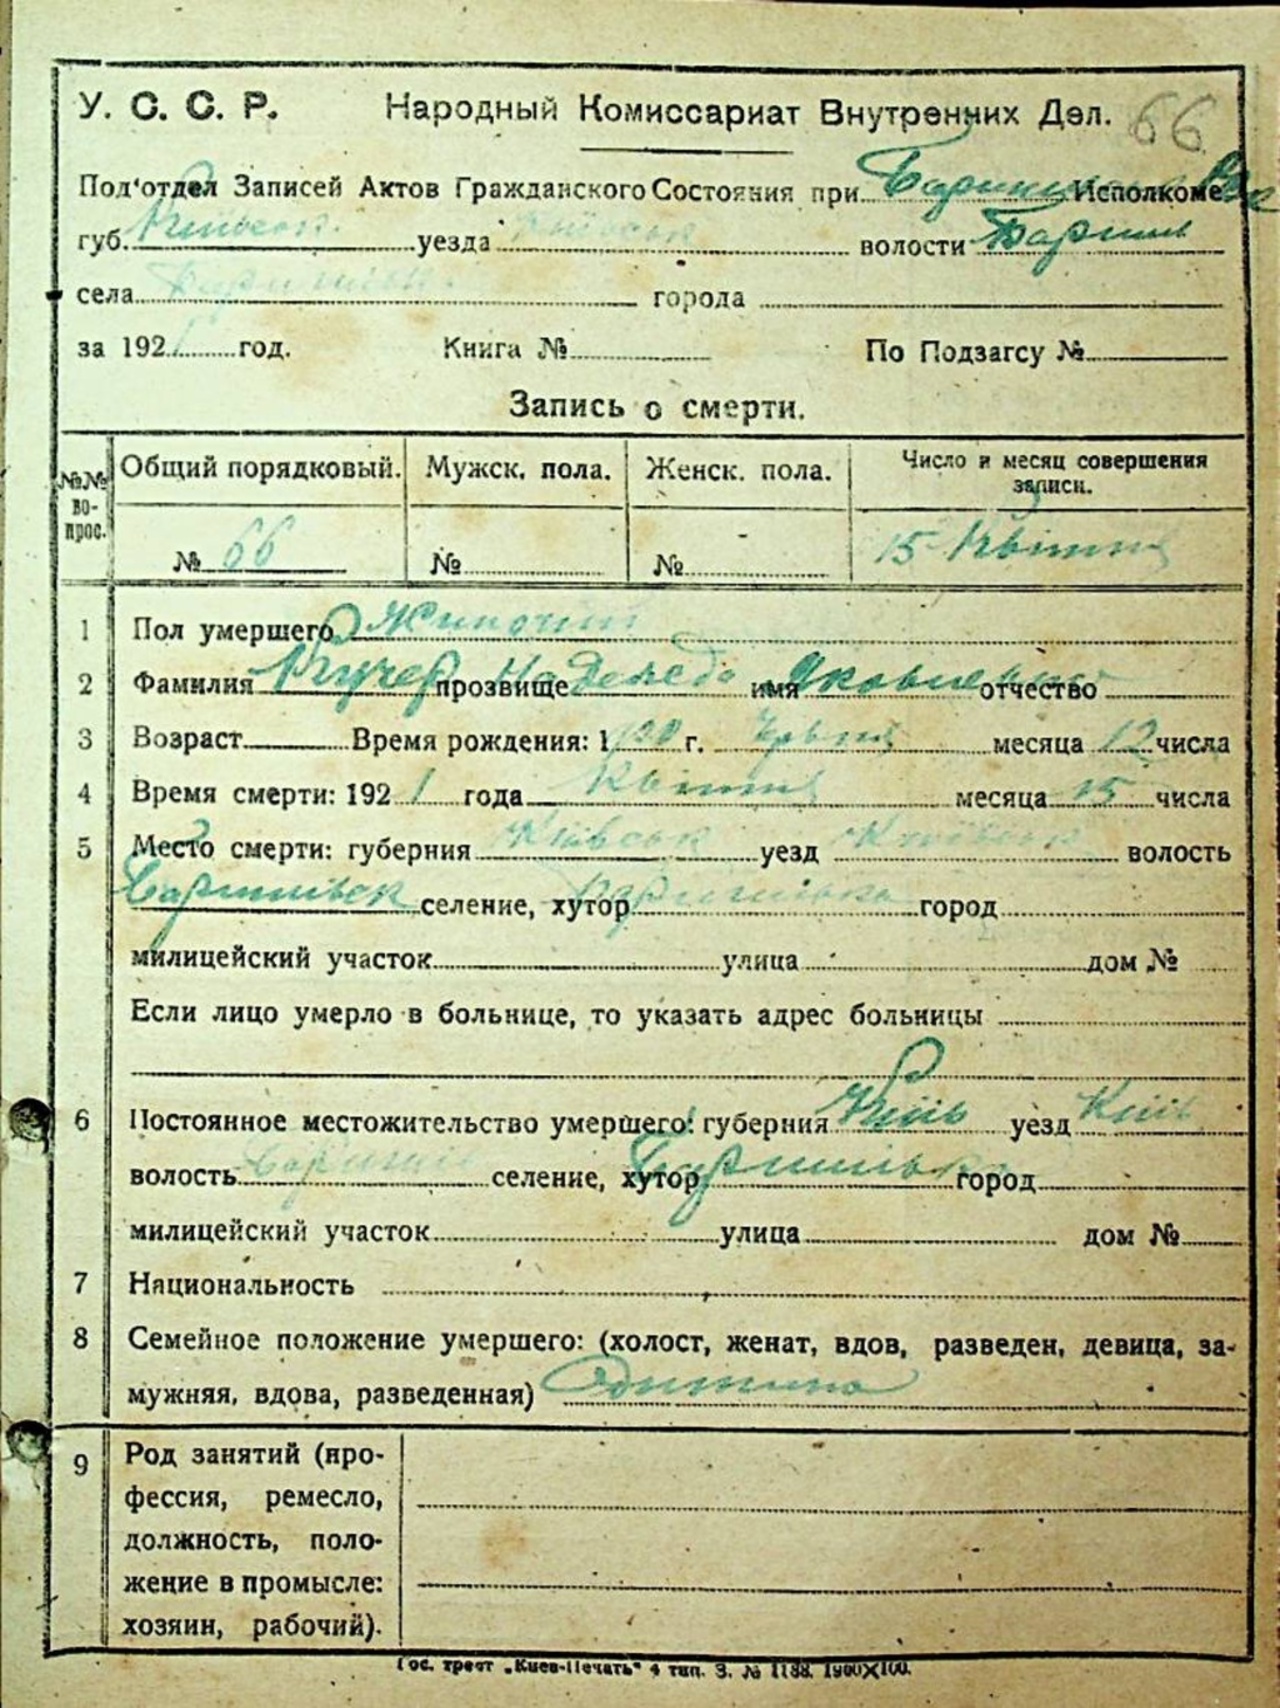 У. С. С. Р. Народный Комиссариат Внутренних Дел. 66
Под'отдел Записей Актов Гражданского Состояния при Исполкоме
губ. Київськ. уезда Київськ волости Баришів
села города
за 192 год. Книга № По Подзагсу №
Запись о смерти.
№№ во-прос. Общий порядковый. Мужск. пола. Женск. пола. Число и месяц совершения записи.
№ 66 № № 15 Квітня
1 Пол умершего Жиночий
2 Фамилия Кучер прозвище Надежда имя Яковлевна отчество
3 Возраст Время рождения: 1920 г. Червня месяца 12 числа
4 Время смерти: 1921 года Квітня месяца 15 числа
5 Место смерти: губерния Київськ уезд Київськ волость
Баришівськ селение, хутор Баришівка город
милицейский участок улица дом №
Если лицо умерло в больнице, то указать адрес больницы
6 Постоянное местожительство умершего: губерния Київ уезд Київ
волость Баришів селение, хутор Баришівка город
милицейский участок улица дом №
7 Национальность
8 Семейное положение умершего: (холост, женат, вдов, разведен, девица, за-
мужняя, вдова, разведенная) Дитина
9 Род занятий (про-
фессия, ремесло,
должность, поло-
жение в промысле:
хозяин, рабочий).
Гос. трест „Киев-Печать" 4 тип. З. № 1188. 1900×100.